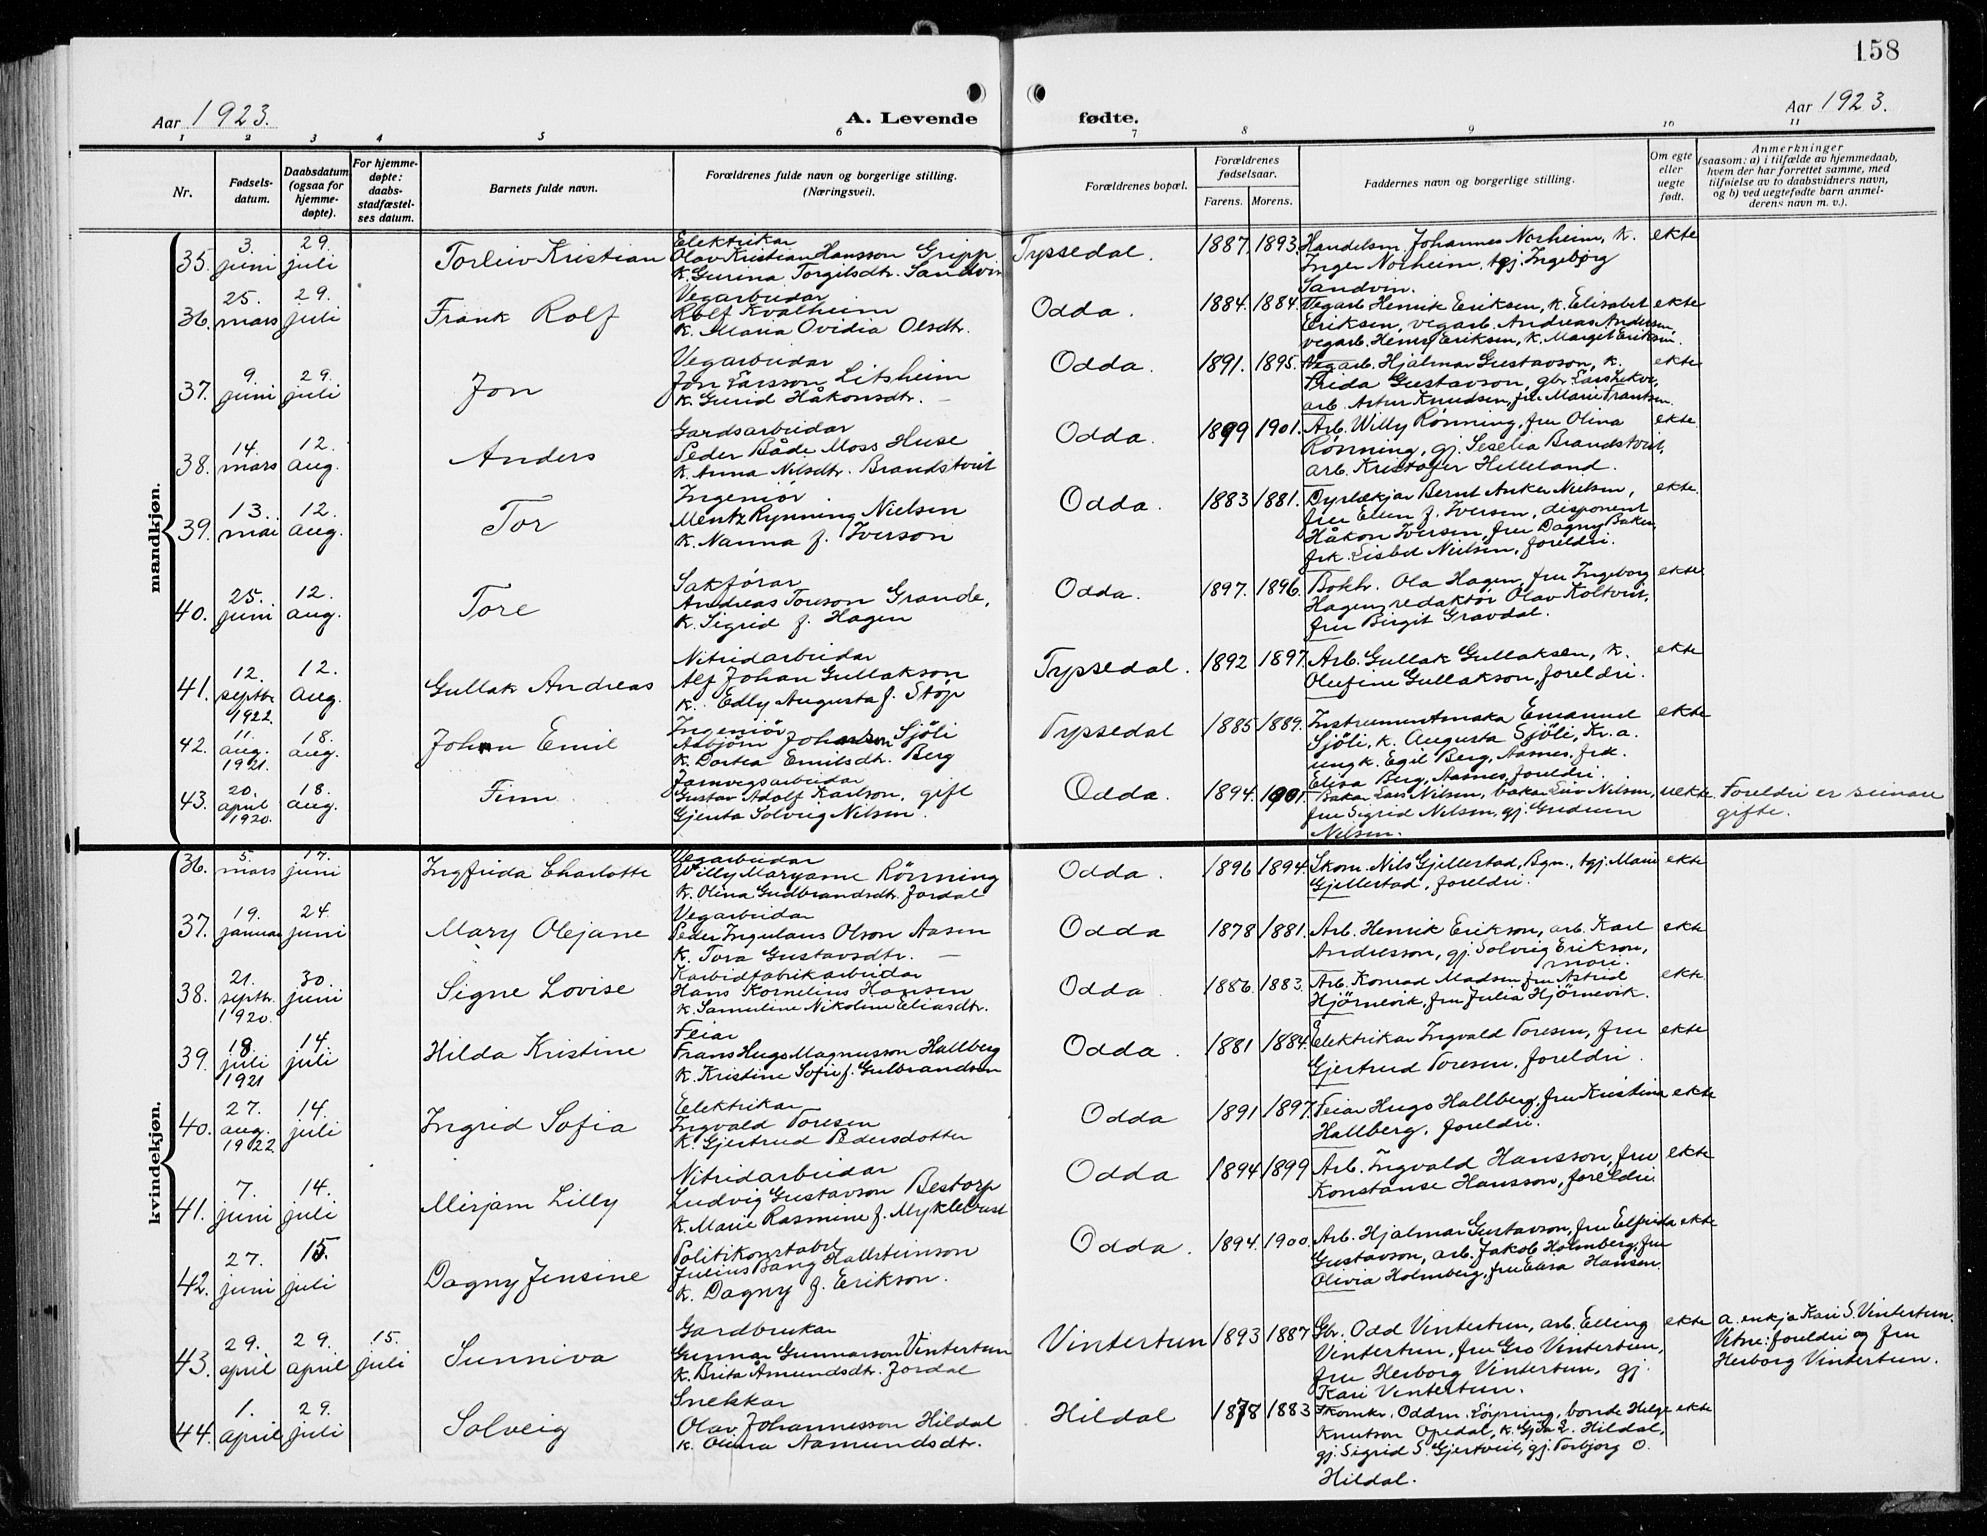 158
Aar 1923.
A. Levende
fødte.
Aar 1923.
1 2 3 4 5 6 7 8 9 10 11
Nr.
Fødsels-
datum.
Daabsdatum
(ogsaa for
hjemme-
døpte).
For hjemme-
døpte:
daabs-
stadfæstel-
ses datum.
Barnets fulde navn.
Forældrenes fulde navn og borgerlige stilling.
(Næringsvei).
Forældrenes bopæl.
Forældrenes
fødselsaar.
Farens. Morens.
Faddernes navn og borgerlige stilling.
Om egte
eller
uegte
født.
Anmerkninger
(saasom: a) i tilfælde av hjemmedaab,
hvem der har forrettet samme, med
tilføielse av to daabsvidners navn,
og b) ved uegtefødte barn anmel-
derens navn m. v.).
mandkjøn.
35. 3. juni 29. juli Torleiv Kristian
Elektrikar
Olav Kristian Hansson Gripp
k. Gurina Torgilsdtr. Sandvin
Tyssedal. 1887. 1893.
Handelsm. Johannes Norheim, k.
Inger Norheim, tgj. Ingebørg
Sandvin.
ekte
36. 25. mars 29. juli Frank Rolf
Vegarbeidar
Rolf Kvalheim
k. Maria Ovidia Olsdtr.
Odda. 1884. 1884.
Vegarb. Henrik Eriksen, k. Elisabet
Eriksen, vegarb. Andreas Andersen,
vegarb. Henry Eriksen, k. Margit Eriksen.
ekte
37. 9. juni 29. juli Jon
Vegarbeidar
Jon Larsson Litsheim
k. Gurid Håkonsdtr. —
Odda. 1891. 1895.
Vegarb. Hjalmar Gustavson, k.
Frida Gustavson, gbr. Lars
arb. Artur Knudsen, fru Marie Frantsen.
ekte
38. 14. mars 12. aug. Anders
Gardsarbeidar
Peder Både Moss Huse
k. Anna Nilsdtr. Brandstveit
Odda. 1899 1901.
Arb. Willy Rønning, fru Olina
Rønning, gj. Seselia Brandstveit,
arb. Kristofer Hilleland.
ekte
39. 13. mai 12. aug. Tor
Ingeniør.
Mentz Rynning Nielsen
k. Nanna f. Iverson
Odda. 1883 1881.
Dyrlækjar Bernt Anker Nielsen,
fru Ellen f. Iversen, disponent
Håkon Iversen, fru Dagny Baker,
frk. Lisbet Nielsen, foreldri.
ekte.
40. 25. juni 12. aug. Tore
Sakførar
Andreas Toreson Grande,
k. Sigrid f. Hagen
Odda. 1897. 1896.
Bokh. Ola Hagen, fru Ingeborg
Hagen, redaktør Olav Koltveit,
fru Birgit Gravdal.
ekte
41. 12. septbr. 1922. 12. aug. Gullak Andreas
Nitridarbeidar
Alf Johan Gullakson
k. Edly Augusta f. Støp
Tyssedal. 1892 1897.
Arb. Gullak Gullaksen, k.
Olufine Gullakson, foreldri.
ekte
42. 11. aug. 1921. 18. aug. Johan Emil
Ingeniør
Asbjørn Johansen Sjøli
k. Dortea Emilsdtr. Berg
Tyssedal 1885 1889.
Instrumentmaka Emanuel
Sjøli, k. Augusta Sjøli, Kr.a.
ungk. Egil Berg, Aasnes, frk.
Elisa Berg, Aasnes, foreldri.
ekte
43. 20. april 1920. 18. aug. Finn
Jarnvegsarbeidar
Gustav Adolf Karlson, gift
Gjenta Solveig Nilsen.
Odda. 1894. 1901.
Bakar Lars Nilsen, bakar Leiv Nilsen,
fru Sigrid Nilsen, gj. Gudrun
Nilsen.
uekte.
Foreldri er seinare
gifte.
kvindekjøn.
36. 5. mars 17. juni Ingfrida Charlotte
Vegarbeidar
Willy Maryanne Rönning
k. Olina Gudbrandsdtr. Jordal
Odda. 1896 1894.
Skom. Nils Gjellestad, Bgn., tgj. Marie
Gjellestad, foreldri.
ekte
37. 19. januar 24. juni Mary Olejane
Vegarbeidar
Peder Ingulaus Olson Aasen
k. Tora Gustavsdtr. —
Odda 1878 1881.
Arb. Henrik Erikson, arb. Karl
Andresson, gj. Solveig Erikson,
mori.
ekte
38. 21. septbr. 1920. 30. juni Signe Lovise
Karbidfabrikarbeidar
Hans Kornelius Hansen
k. Sameline Nikoline Eliasdtr.
Odda 1886. 1883.
Arb. Konrad Madsen, fru Astrid
Hjørnevik, fru Julia Hjørnevik.
ekte
39. 18. juli 1921 14. juli Hilda Kristine
Feiar
Frans Hugo Magnusson Hallberg
k. Kristine Sofie f. Gulbrandsen
Odda. 1881 1884.
Elektrikar Ingvald Toresen, fru
Gjertrud Toresen, foreldri.
ekte
40. 27. aug. 1922 14. juli Ingrid Sofia
Elektrikar
Ingvald Toresen
k. Gjertrud Pedersdotter
Odda 1891 1897.
Feiar Hugo Hallberg, fru Kristina
Hallberg, foreldri.
ekte
41. 7. juni 14. juli Mirjam Lilly
Nitridarbeidar
Ludvig Gustavson Bestorp
k. Marie Rasmine f. Myklebust
Odda 1894 1899
Arb. Ingvald Hansson, fru
Konstanse Hansson, foreldri.
ekte
42. 27. juni 15. juli Dagny Jensine
Politikonstabel
Julius Bang Hallsteinson
k. Dagny f. Erikson.
Odda. 1894. 1900.
Arb. Hjalmar Gustavson, fru Elfrida
Gustavson, arb. Jakob Holmberg, fru
Olivia Holmberg, fru Elisa Hansen.
ekte
43. 29. april 29. april 15. juli Sunniva
Gardbrukar
Gunnar Gunnarson Vintertun
k. Brita Amundsdtr. Jordal
Vintertun 1893 1887
Gbr. Odd Vintertun, arb. Elling
Vintertun, fru Gro Vintertun,
fru Herborg Vintertun, gj.
Kari Vintertun.
ekte
a. enkja Kari S. Vintertun.
Vitne: foreldri og fru
Herborg Vintertun.
44. 1. april 29. juli Solveig
Snekkar
Olav Johannesson Hildal
k. Olina Aamundsdtr.
Hildal 1878 1883
Skomkr. Oddm. Løyning, bonde Helge
Knutson Opedal, k. Gjöa L. Hildal,
gj. Sigrid S. Gjertveit, gj. Torbjørg O.
Hildal.
ekte